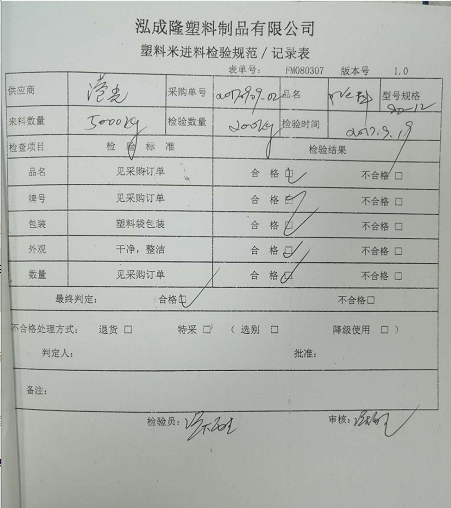 泓成隆塑料制品有限公司
塑料米进料检验规范/记录表
表单号: FM080307 版本号 1.0
供应商 采购单号 品名 型号规格
来料数量 5000kg 检验数量 200kg 检验时间 2017.9.19
检查项目 检 验 标 准 检验结果
品名 见采购订单 合 格□ 不合格□
牌号 见采购订单 合 格□ 不合格□
包装 塑料袋包装 合 格□ 不合格□
外观 干净,整洁 合 格□ 不合格□
数量 见采购订单 合 格□ 不合格□
最终判定: 合格□ 不合格□
不合格处理方式: 退货 □ 特采 □ ( 选别 □ 降级使用 □ )
判定人: 批准:
备注:
检验员: 审核: